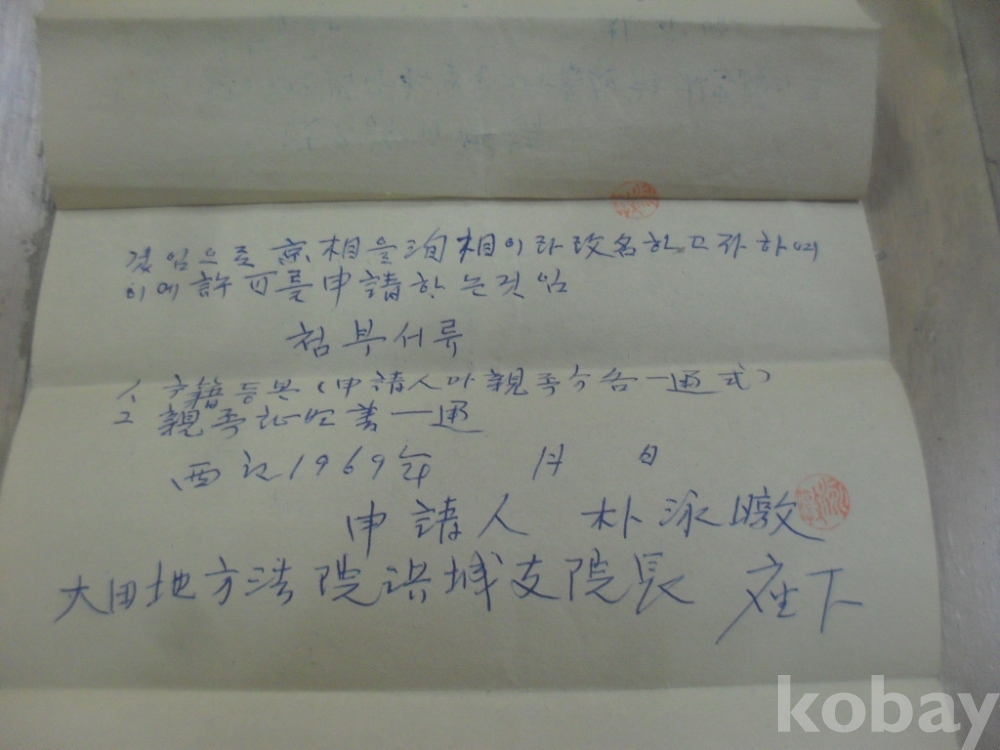 것임으로 京相을 洵相이라 改名하고자 하며
이에 許可를 申請하는것임
첨부서류
1. 戶籍등본 (申請人과 親族分 各一通式)
2 親族証明書一通
西紀1969年 1月 日
申請人 朴泳暾
大田地方法院洪城支院長 座下
kobay